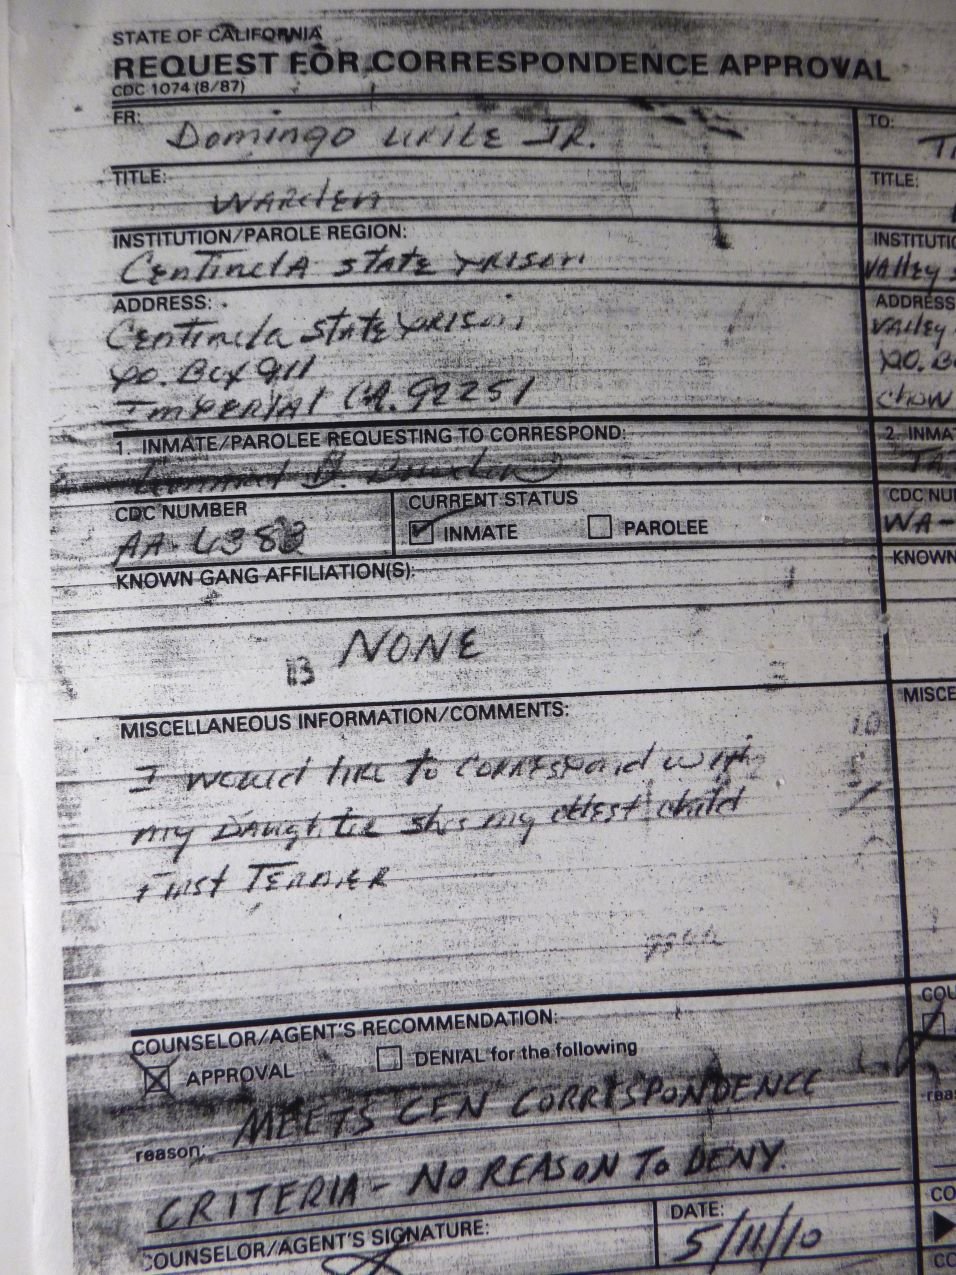 STATE OF CALIFORNIA
REQUEST FOR CORRESPONDENCE APPROVAL
CDC 1074 (8/87)
FR:
Domingo URIBE JR.
TITLE:
WARden
INSTITUTION/PAROLE REGION:
CentinelA STATE PRISON
ADDRESS:
Centinela STATE PRISON
P.O. Box 911
IMPERIAL CA. 92251
1. INMATE/PAROLEE REQUESTING TO CORRESPOND:
CDC NUMBER
AA-6383
CURRENT STATUS
INMATE
PAROLEE
KNOWN GANG AFFILIATION(S):
NONE
MISCELLANEOUS INFORMATION/COMMENTS:
I would like to CORRESpond with
my DAughter She's my oldest child
First TERMER
COUNSELOR/AGENT'S RECOMMENDATION:
APPROVAL
DENIAL for the following
reason: MEETS CEN CORRESPONDENCE
CRITERIA - NO REASON TO DENY.
COUNSELOR/AGENT'S SIGNATURE:
DATE:
5/11/10
TO:
TITLE:
INSTITUTI
VAlley S
ADDRESS
VAlley
P.O. B
Chow
2. INMA
CDC NU
WA-
KNOWN
MISCE
COU
rea
CO